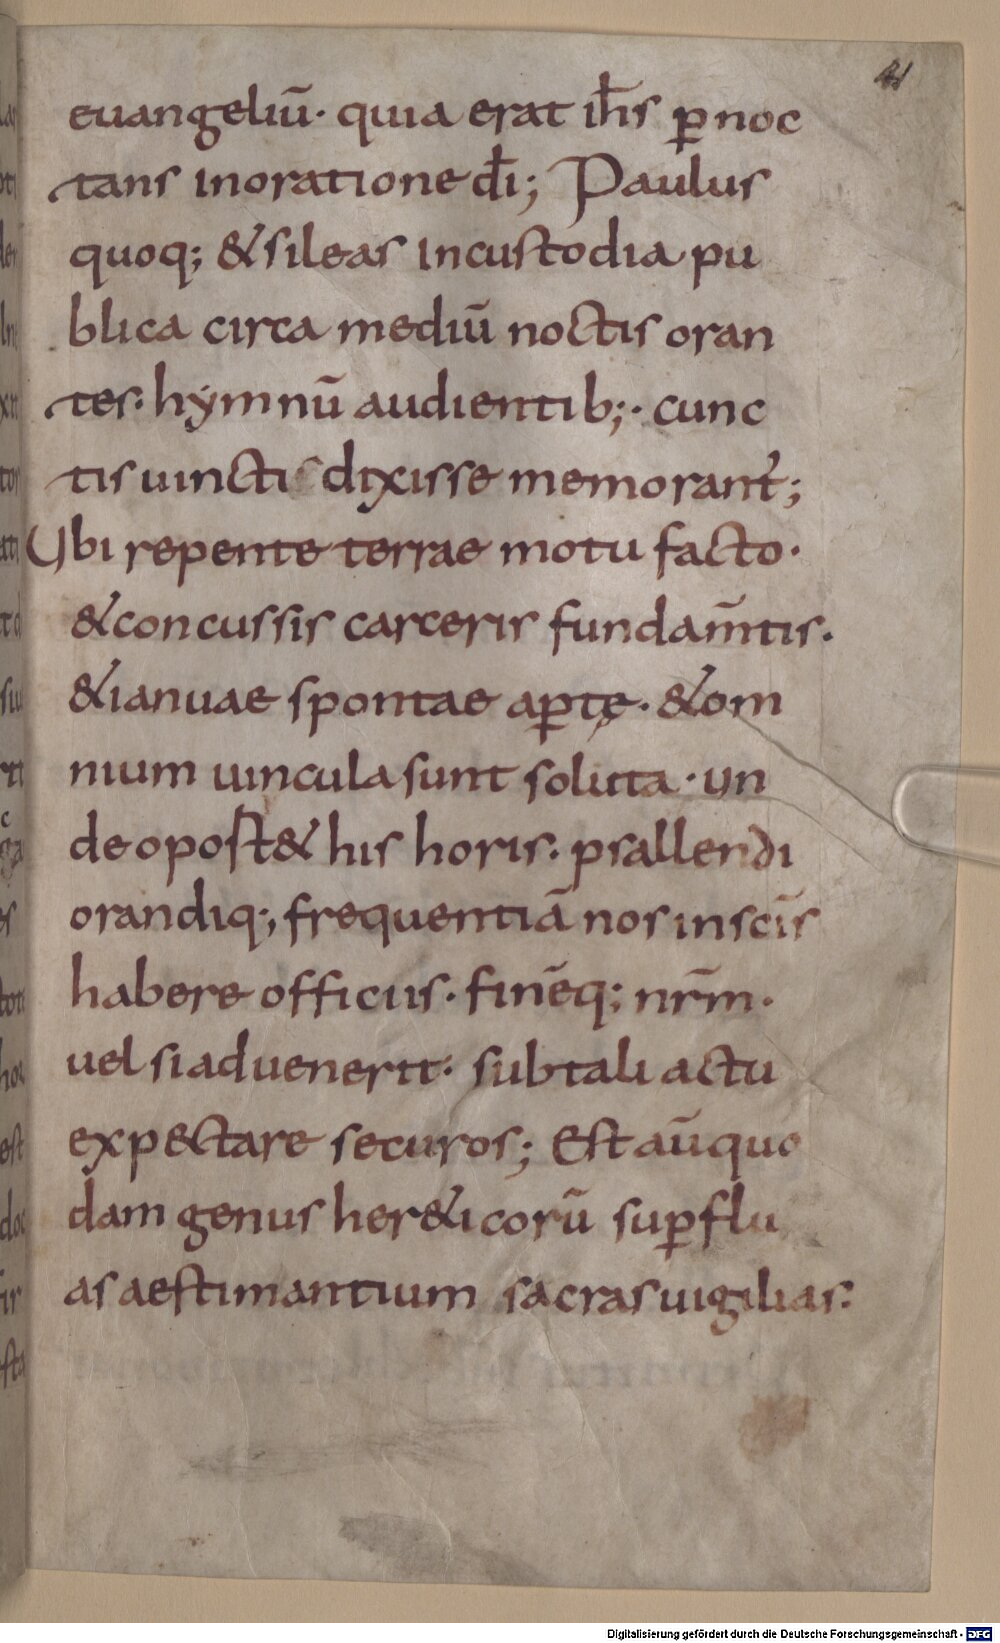 euangeliū· quia erat ih̄s ꝑnoc
tans inoratione dī; Paulus
quoq; &sileas incustodia pu
blica circa mediū noctis oran
tes· hẏmnū audientib;· cunc
tis uinctis dixisse memorant̄;
Ubi repente terrae motu facto·
&concussis carceris fundam̄tis·
&ianuae spontae aꝑtę· &om
nium uincula sunt soluta· un
de opost& his horis· psallendi
orandiq; frequentiā nos insc̄is
habere officiis· finēq; nr̄m·
uel siaduenerit· subtali actu
expectare securos; Est aūquo
dam genus her&icorū suꝑflu
as aestimantium sacras uigilias:
Digitalisierung gefördert durch die Deutsche Forschungsgemeinschaft - DFG